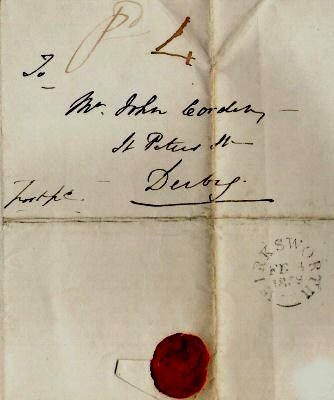 Pd 4
To
Mr. John Cordeby
St Peters St
Derby.
post pd.
WIRKSWORTH
FE 4